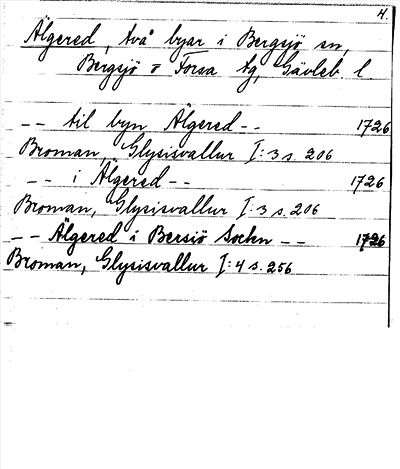 4.
Älgered, två byar i Bergsjö sn,
Bergsjö o Forsa tg, Gävleb. l
-- til byn Älgered -- 1726
Broman, Glysisvallur I:3 s. 206
-- i Älgered -- 1726
Broman, Glysisvallur I:3 s. 206
-- Älgered i Bersiö Sockn -- 1726
Broman, Glysisvallur I:4 s. 256